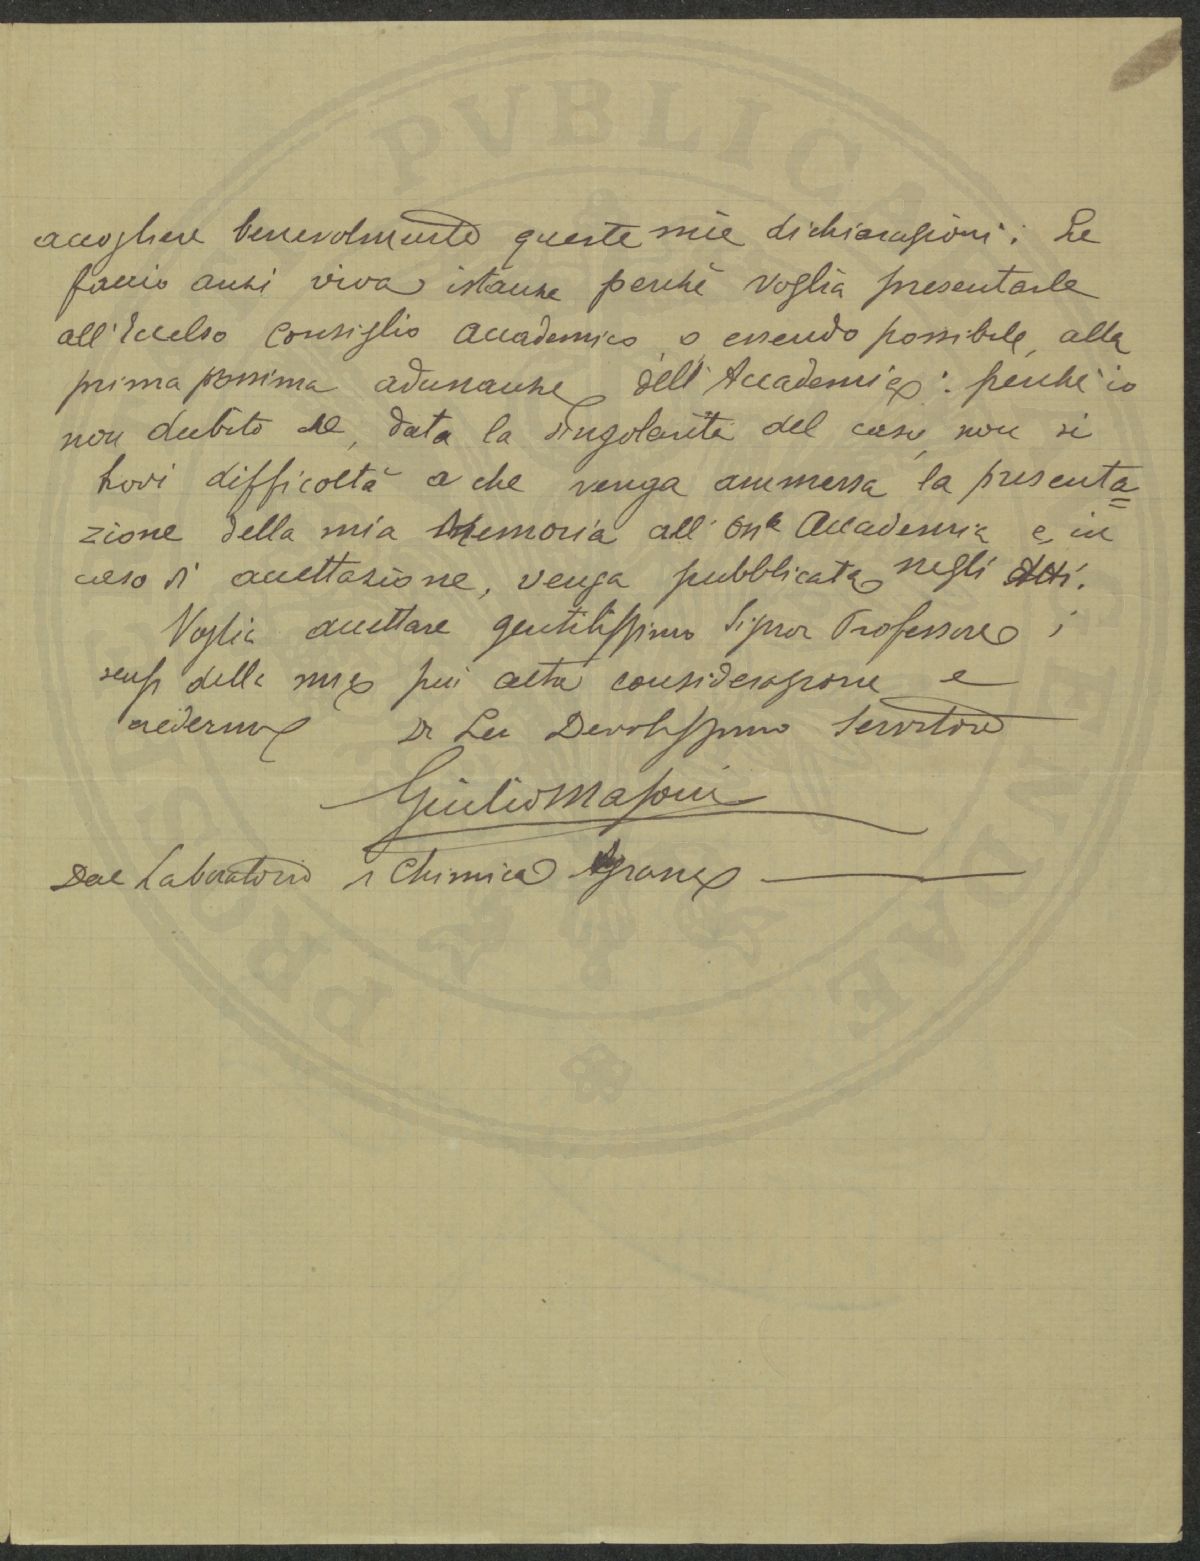 accogliere benevolmente queste mie dichiarazioni: Le
faccio anzi viva istanza perchè voglia presentarle
all'Eccelso Consiglio Accademico, o essendo possibile, alla
prima possima adunanza dell'Accademia: perchè io
non dubito che, data la singolarità del caso, non si
trovi difficoltà a che venga ammessa la presenta=
zione della mia Memoria all' On.le Accademia e, in
caso di accettazione, venga pubblicata negli Atti.
Voglia accettare gentilissimo Signor Professore i
sensi della mia più alta considerazione e
credermi Di Lei Devotissimo Servitore
Giulio Masoni
Dal Laboratorio di Chimica Agraria
PROSPERITATI PVBLICAE AVGENDAE